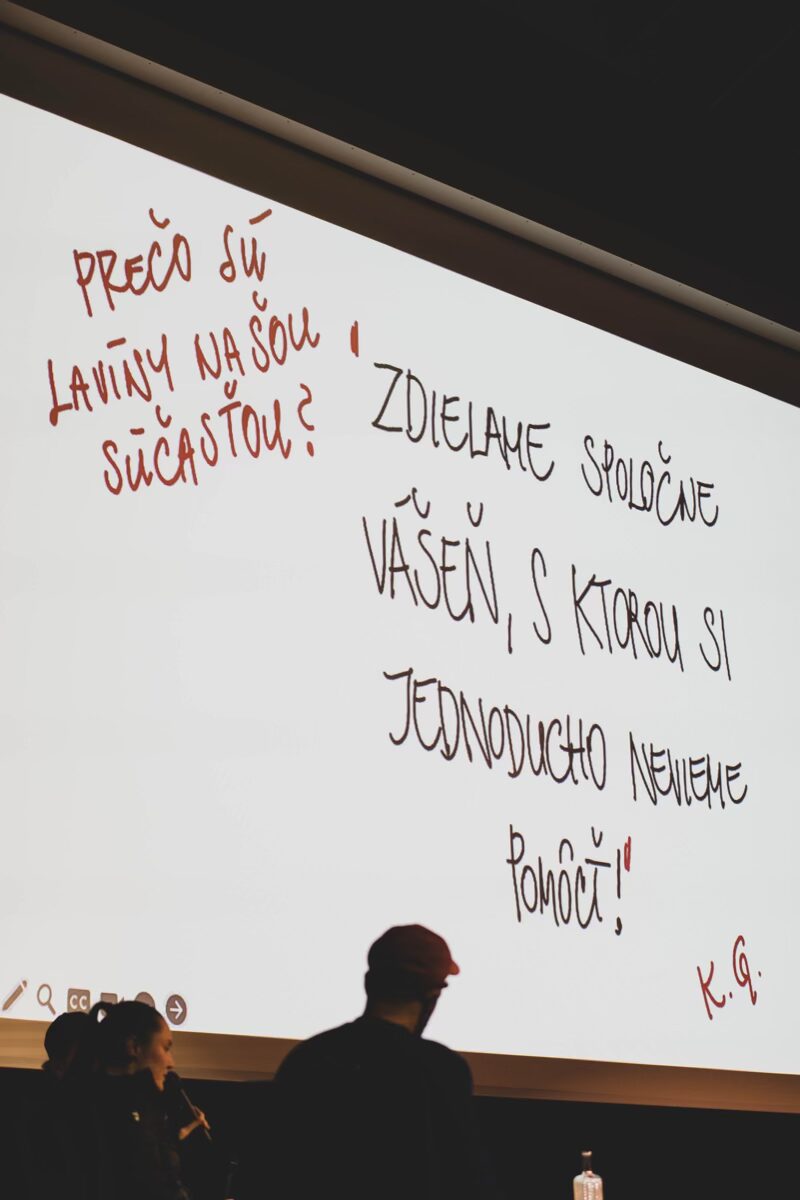 PREČO SÚ
LAVÍNY NAŠOU
SÚČASŤOU?
"ZDIELAME SPOLOČNE
VÁŠEŇ, S KTOROU SI
JEDNODUCHO NEVIEME
POMÔCŤ!"
K.G.
CC